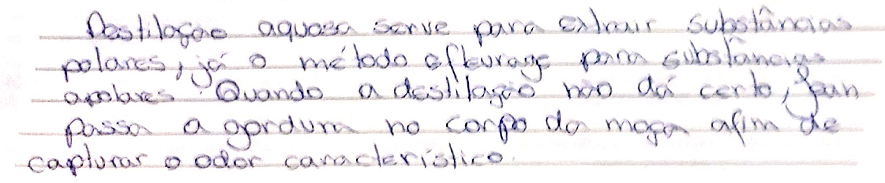 Destilação aquosa serve para extrair substâncias
polares, já o método efleurage para substâncias
apolares. Quando a destilação não dá certo, Jean
passa a gordura no corpo da moça afim de
capturar o odor característico.